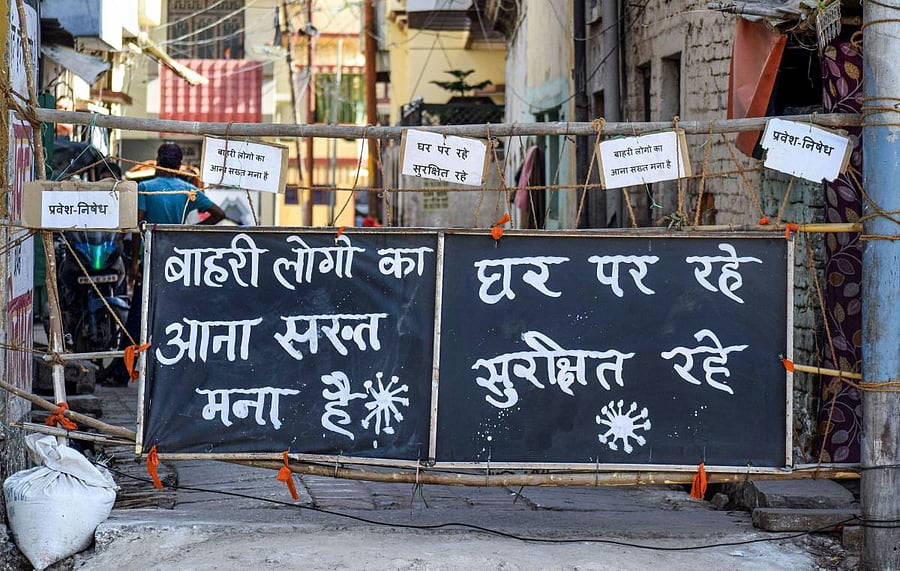 प्रवेश-निषेध
बाहरी लोगो का
आना सख्त मना है
घर पर रहे
सुरक्षित रहे
बाहरी लोगो का
आना सख्त मना है
प्रवेश-निषेध
बाहरी लोगो का
आना सख्त
मना है
घर पर रहे
सुरक्षित रहे